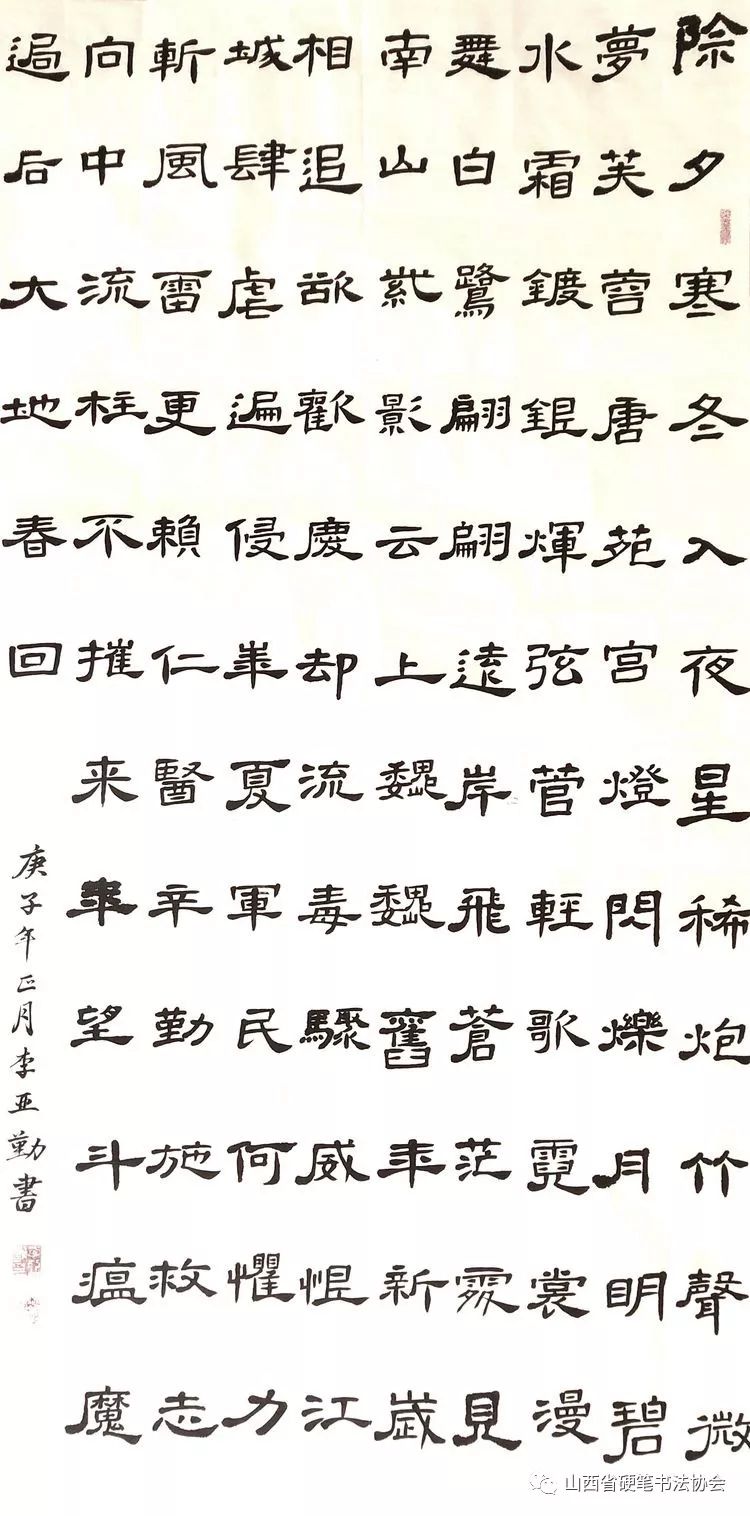 除夕寒冬入夜星稀炮竹聲微
夢芙蓉唐苑宫燈閃爍月明碧
水霜鍍銀輝弦菅輕歌霓裳漫
舞白鷺翩翩遠岸飛蒼茫見
南山紫影云上巍巍舊年新歲
相追欲歡慶却流毒驟威恨江
城肆虐遍侵華夏軍民何懼力
斬風雷更賴仁醫辛勤施救志
向中流柱不摧来年望斗瘟魔
過后大地春回
庚子年正月李亚勤書
山西省硬笔书法协会